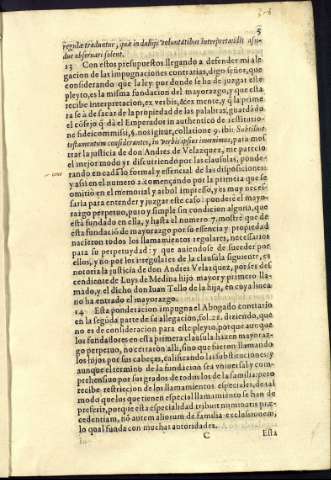 5
regulæ traduntur, quæ in dubijs voluntatibus interpretandis assi-
due observari solent.
13 Con estos presupuestos llegando a defender mi ale
gacion de las impugnaciones contrarias, digo señor, que
considerando que la ley por donde se ha de juzgar este
pleyto, es la misma fundacion del mayorazgo, y que esta
recibe interpretacion, ex verbis, & ex mente, y q̃ la prime
ra se à de sacar de la propiedad de las palabras, guardãdo
el cõsejo q̃ dà el Emperador in authentico de restitutio-
ne fideicommissi, §. nos igitur, collatione 9. ibi: Subtilius
testamentum considerantes, & verbis ipsius inuenimus, para mos
trar la justicia de don Andres de Velazquez, me parecio
el mejor modo yr discurriendo por las clausulas, ponde-
rando en cada lo formal y essencial de las disposiciones:
y assi en el numero 2. començando por la primera que se
omitio en el memorial y arbol impresso, y es muy neces-
saria para entender y juzgar este caso: pondere el mayo-
razgo perpetuo, puro y simple sin condicion alguna, que
està fundado en ella, y hasta el numero 7. mostrè que de
esta fundaciõ de mayorazgo por su essencia y propiedad
nacieron todos los llamamientos regulares, necessarios
para su perpetuydad: y que aniendose de suceder por
ellos, y no por los irregulares de la clausula siguiente, es
notoria la justicia de don Andres Velazquez, por ser des-
cendiente de Luys de Medina hijo mayor y primero lla-
mado, y el dicho don Iuan Tello de la hija, en cuya linea
no ha entrado el mayorazgo.
14 Esta ponderacion impugna el Abogado contrario
en la segũda parte de su allegaciõn, fol. 22. diziendo, que
no es de consideracion para este pleyto, porque aunque
los fundadores en esta primera clausula hazen mayoraz-
go perpetuo, no citaron assi, sino que fueron llamando
los hijos por sus cabeças, calificando las substituciones: y
aunque el termino de la fundacion sea vniuersal y com-
prehensiuo por sus grados de todos los de la familia: pero
recibe restriccion de los llamamientos especiales, de tal
modo que los que tienen especial llamamiento se han de
preferir, porque esta especialidad tribuit nominatis præ-
cedentiam, nõ autem aliorum de familia exclusionem,
lo qual funda con muchas autoridades.
C Esta